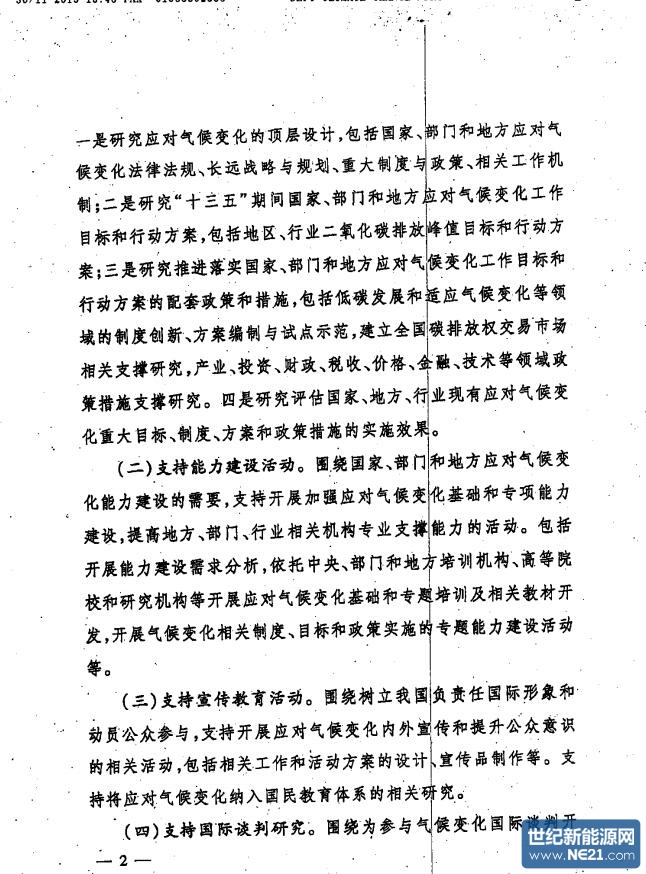 一是研究应对气候变化的顶层设计,包括国家、部门和地方应对气
候变化法律法规、长远战略与规划、重大制度与政策、相关工作机
制;二是研究“十三五”期间国家、部门和地方应对气候变化工作
目标和行动方案,包括地区、行业二氧化碳排放峰值目标和行动方
案;三是研究推进落实国家、部门和地方应对气候变化工作目标和
行动方案的配套政策和措施,包括低碳发展和适应气候变化等领
域的制度创新、方案编制与试点示范,建立全国碳排放权交易市场
相关支撑研究,产业、投资、财政、税收、价格、金融、技术等领域政
策措施支撑研究。四是研究评估国家、地方、行业现有应对气候变
化重大目标、制度、方案和政策措施的实施效果。
(二)支持能力建设活动。围绕国家、部门和地方应对气候变
化能力建设的需要,支持开展加强应对气候变化基础和专项能力
建设,提高地方、部门、行业相关机构专业支撑能力的活动。包括
开展能力建设需求分析,依托中央、部门和地方培训机构、高等院
校和研究机构等开展应对气候变化基础和专题培训及相关教材开
发,开展气候变化相关制度、目标和政策实施的专题能力建设活动
等。
(三)支持宣传教育活动。围绕树立我国负责任国际形象和
动员公众参与,支持开展应对气候变化内外宣传和提升公众意识
的相关活动,包括相关工作和活动方案的设计、宣传品制作等。支
持将应对气候变化纳入国民教育体系的相关研究。
(四)支持国际谈判研究。围绕为参与气候变化国际谈判开
— 2 —
世纪新能源网
www.NE21.com